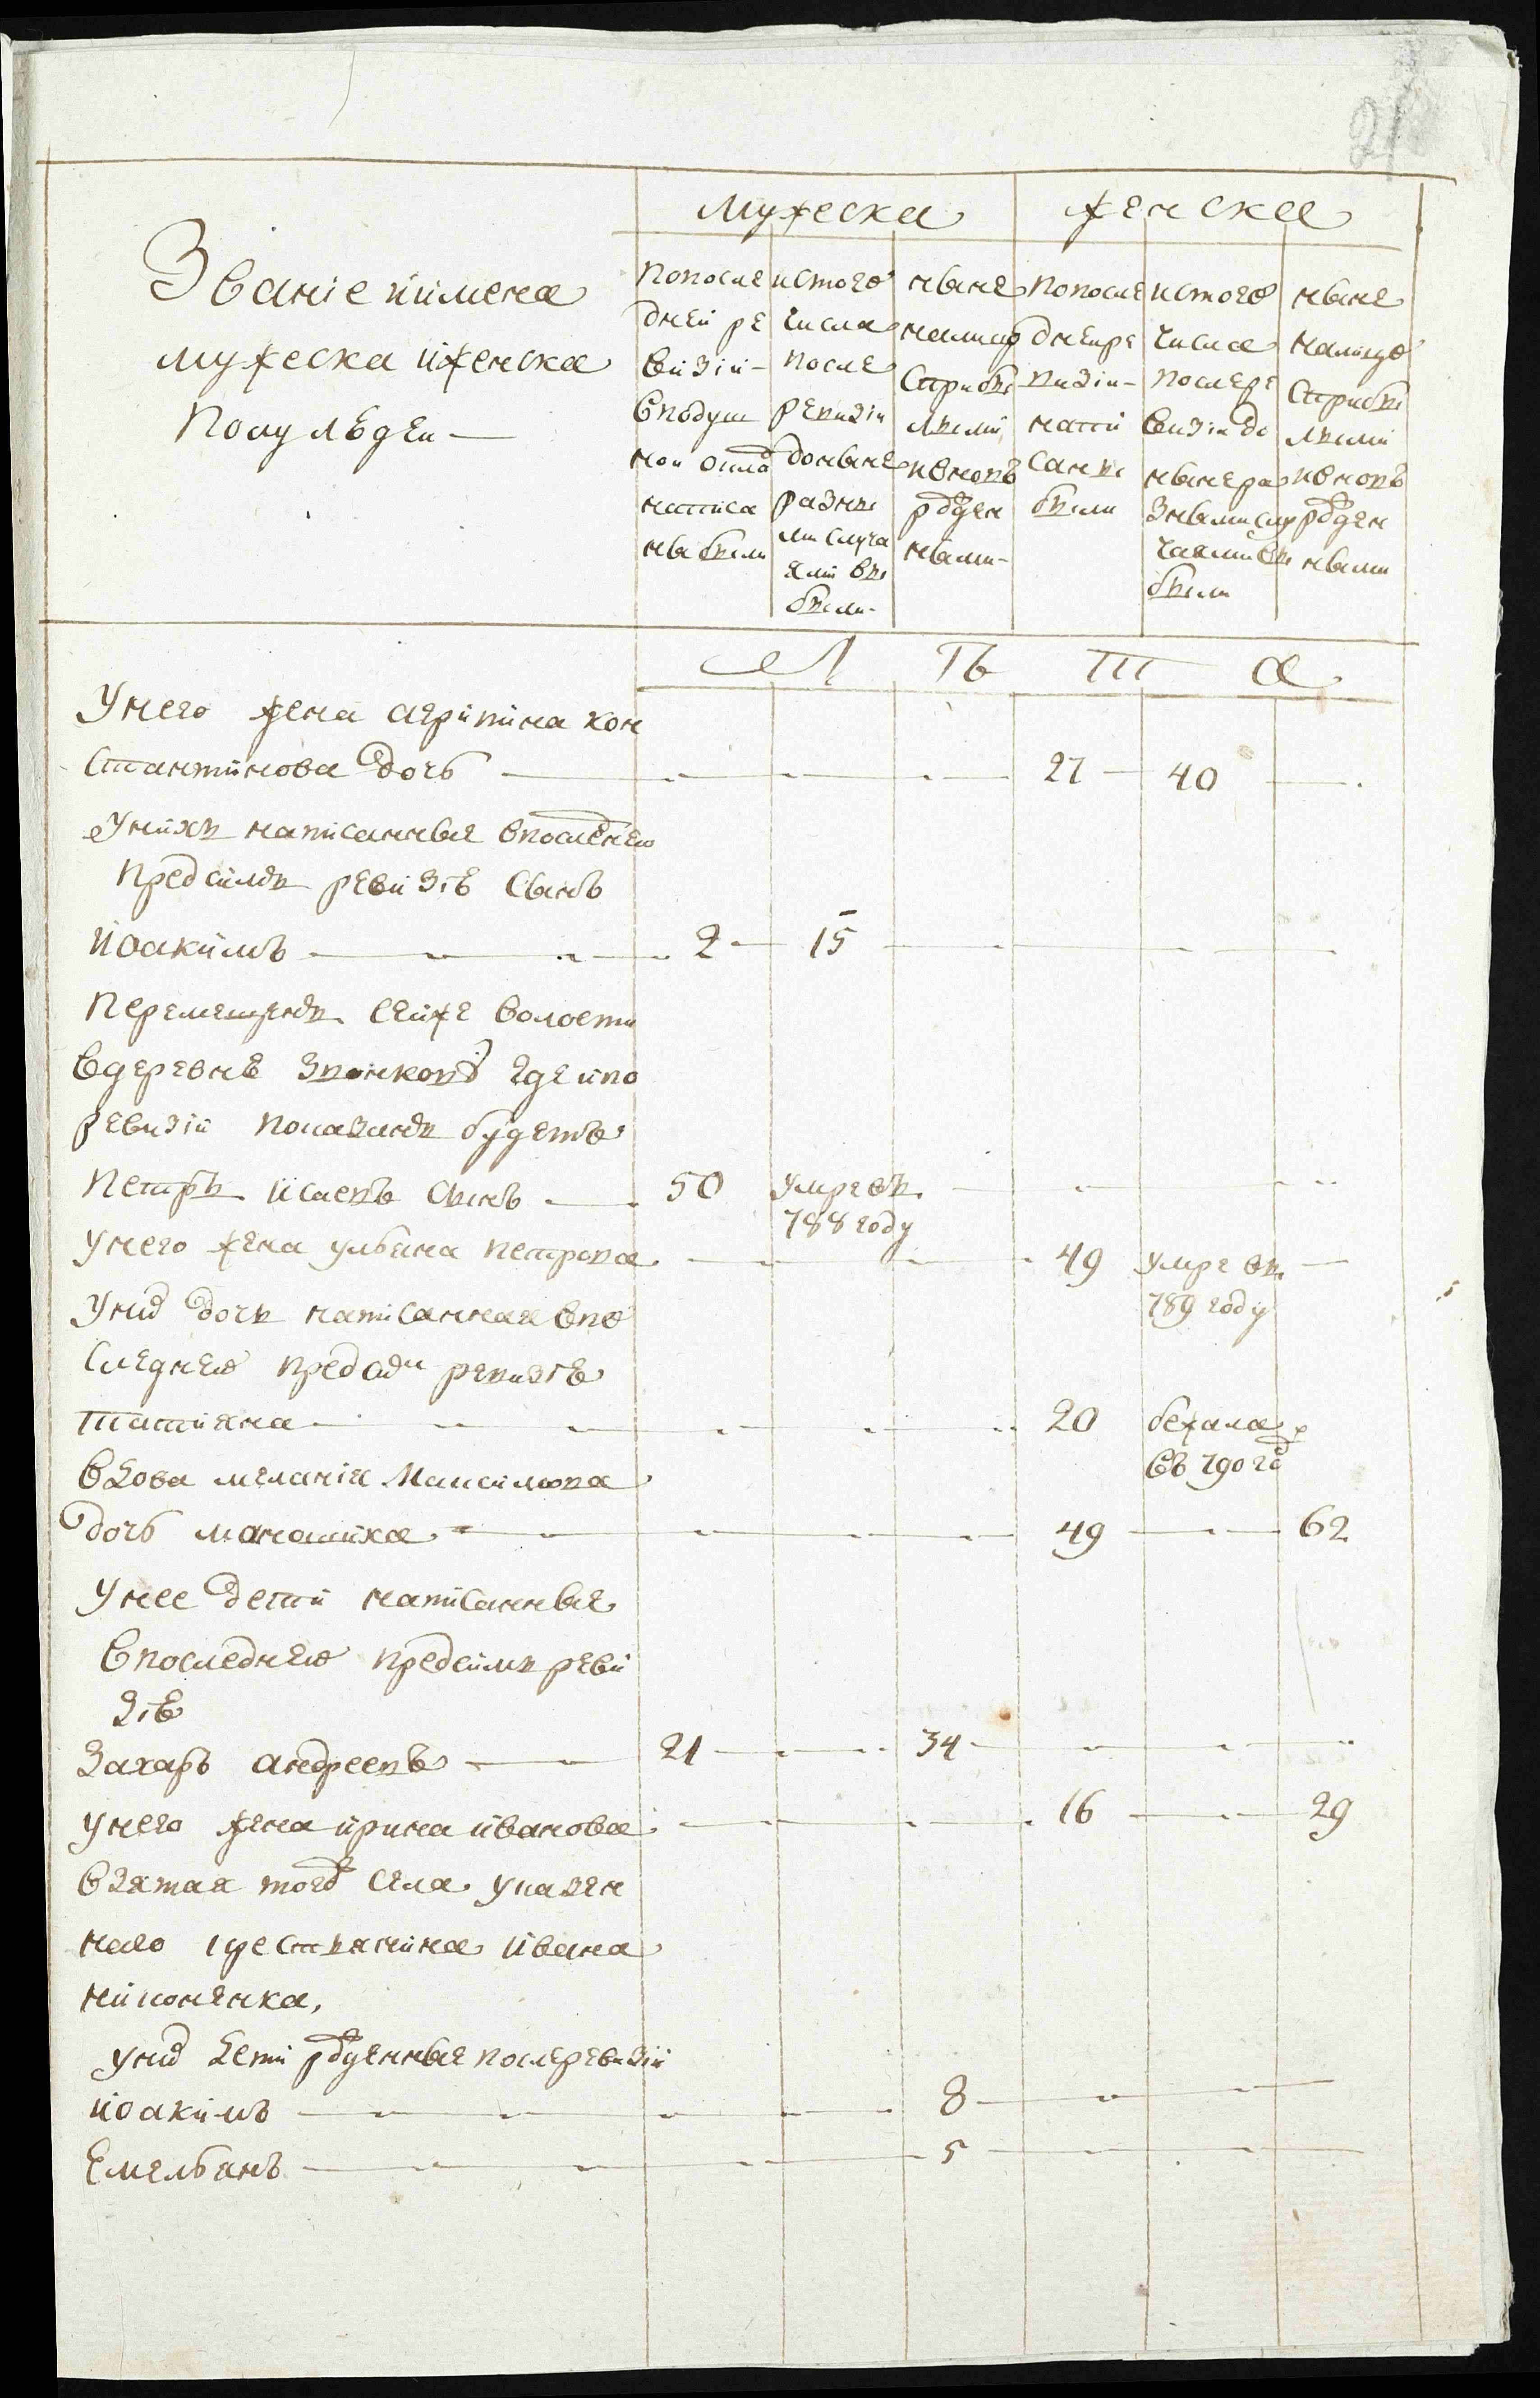 21
Званіе и имена
мужеска и женска
полу людеи
мужеска
женска
по после
дней ре
визіи
в подуш
ной окла
написа
ны были
ис того
числа
после
ревизіи
до ныне
разны
ми случа
ями вы
были
ныне
на лицо
с прибы
лыми
и вновь
рожден
ными
по после
дней ре
визіи
напи
саны
были
ис того
числа
после ре
визіи до
ныне ра
зными слу
чаями вы
были
ныне
на лицо
с прибы
лыми
и вновь
рожден
ными
л ѣ т а
У него жена агрипина кон
стантинова дочь 27 40
У нихъ написанные в последнею
пред симъ ревизіе сынъ
иоакимъ 2 15
перемещенъ сей же волости
в деревне где и по
ревизіи показанъ будетъ
петръ исаевъ сынъ 50 умре въ
788 году
У него жена ульяна петрова 49 умре въ
789 году
У них дочь написанная в по
следнею пред сим ревизіе
татияна 20 бежала
въ 790 го
вдова меланія Максимова
дочь 49 62
У нее дети написанные
в последнею пред симъ реви
зіе
Захаръ андреевъ 21 34
у него жена ирина иванова 16 29
взятая того села указан
наго крестьянина ивана
никоненка,
у них дети рожденные после ревизіи
иоакимъ 8
Емельянъ 5